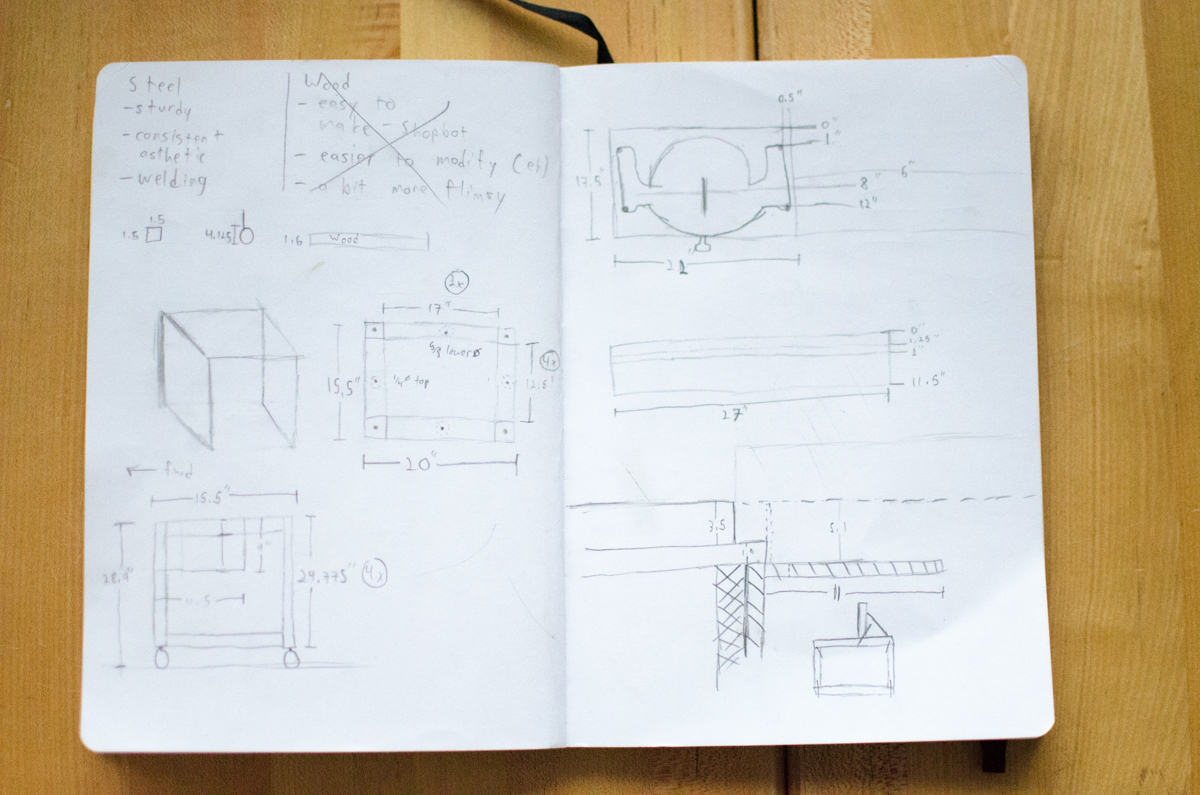 Steel
- sturdy
- consistent
asthetic
- welding
Wood
- easy to
make - Shopbot
- easier to modify (eh)
- a bit more flimsy
1.5
1.5
4.125
1.6
Wood
2x
17"
5/8 lower
15.5"
1/4" top
4x
12.5"
20"
← fwd
15.5"
28.9"
9"
24.775"
4x
0.5"
0"
1"
17.5"
6"
8"
12"
0"
1.25"
1"
11.5"
27"
3.5
5.1
11